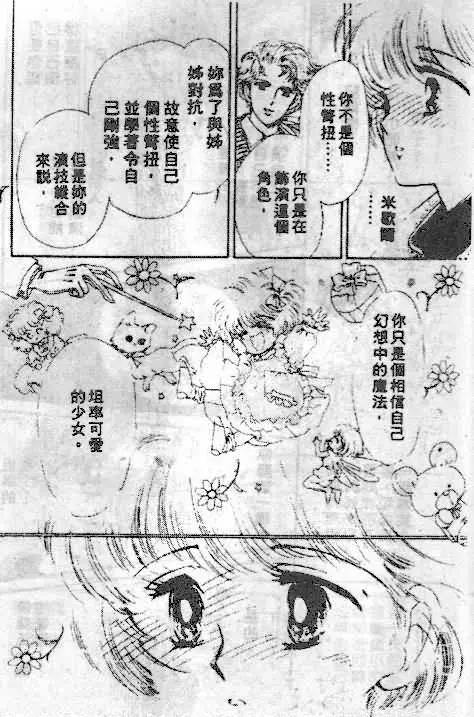 米歇爾
……
你不是個
性彆扭……
你只是在
飾演這個
角色，
妳為了與姊
姊對抗，
故意使自己
個性彆扭，
並學著令自
己剛強，
但是妳的
演技綜合
來說，
你只是個相信自己
幻想中的魔法，
坦率可愛
的少女。